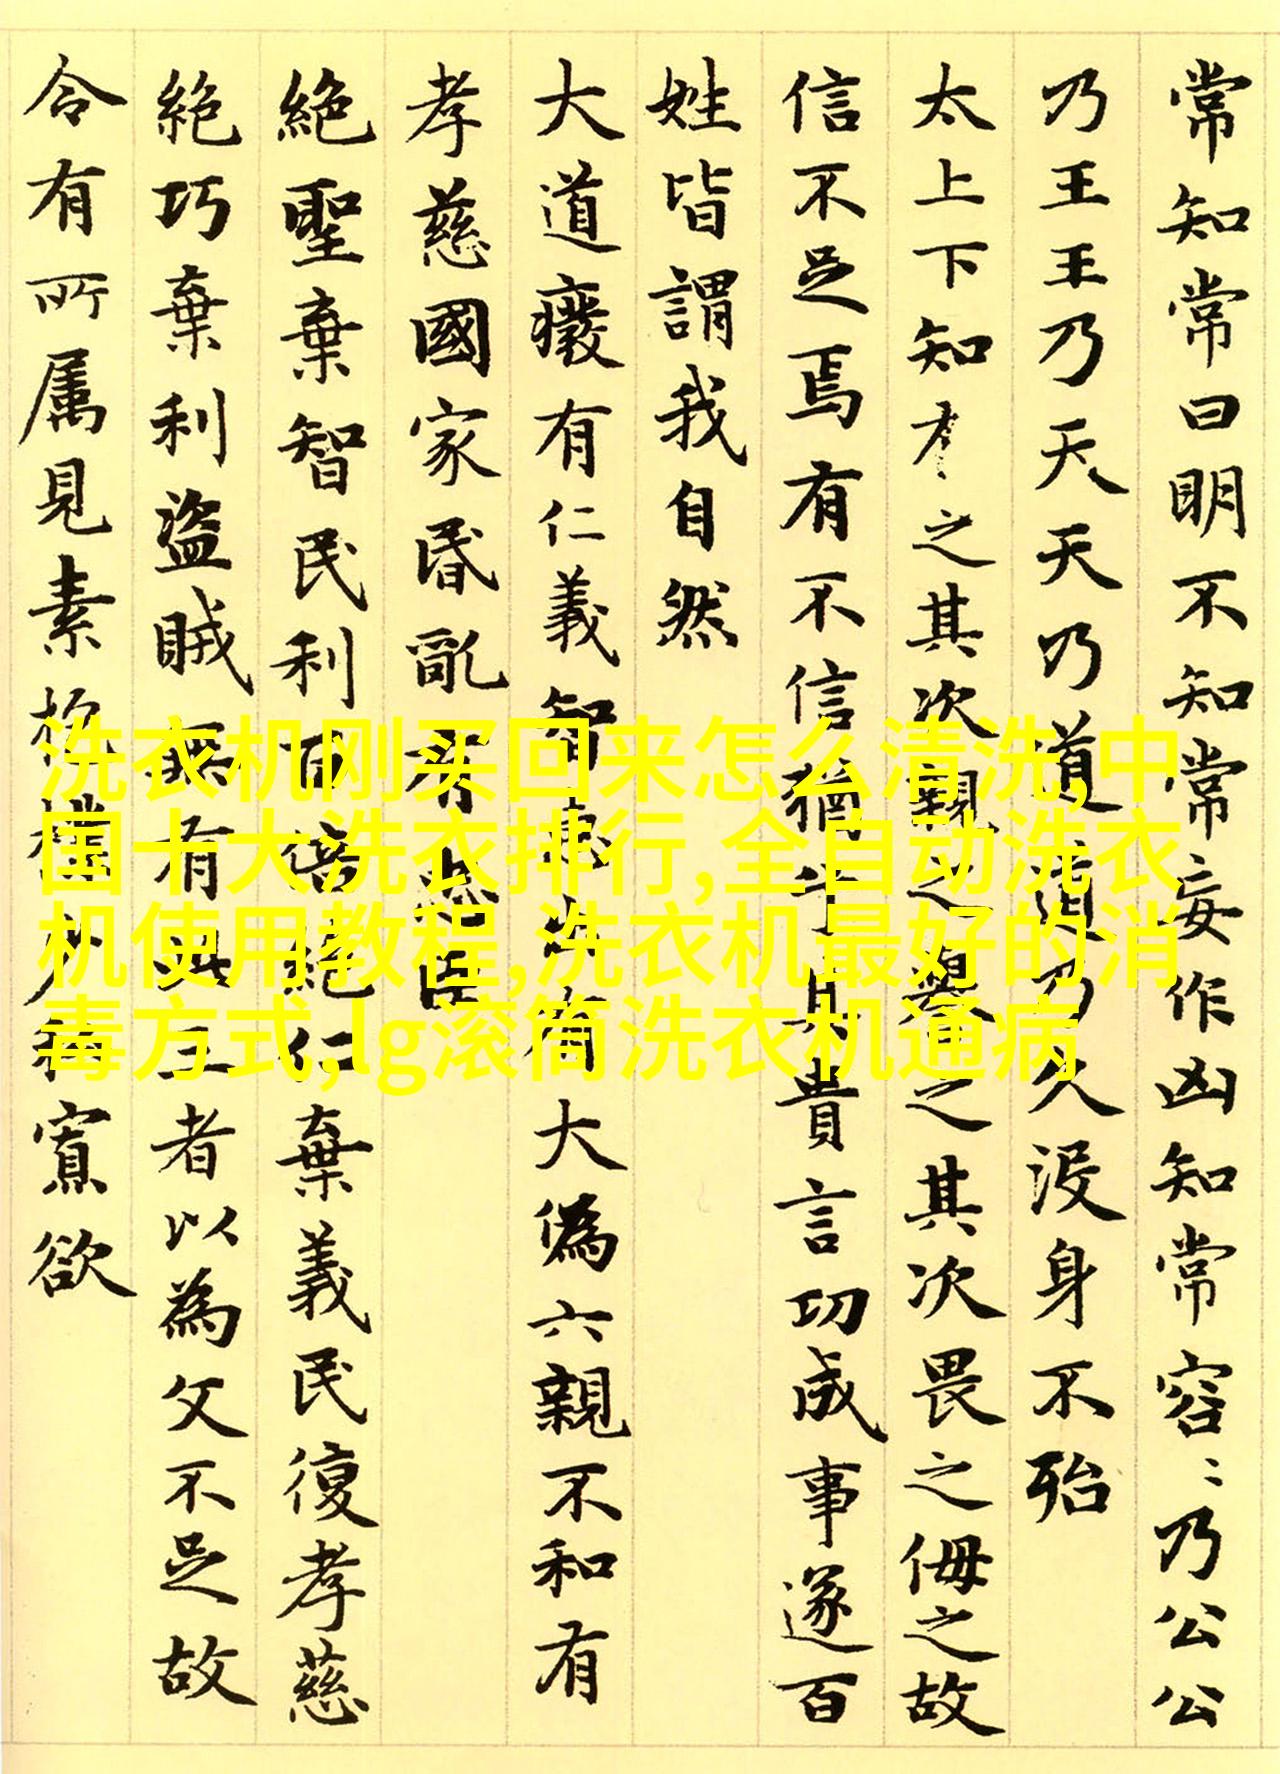 常知常曰明不知知常妄作凶知常容〻乃公公
乃王王乃天天乃道道乃久没身不殆
太上下知有之其次親之譽之其次畏之侮之故
信不足焉有不信信猶乎其貴言功成事遂百
姓皆謂我自然
大道癈有仁義智惠出有大偽六親不和有
孝慈國家昏亂有忠臣
絶聖棄智民利百倍絶仁棄義民復孝慈
絶巧棄利盗賊無有此三者以為文不足故
令有所属見素抱樸少私寡欲
洗衣机刚买回来怎么清洗,中
国十大洗衣排行,全自动洗衣
机使用教程,洗衣机最好的消
毒方式,lg滚筒洗衣机通病